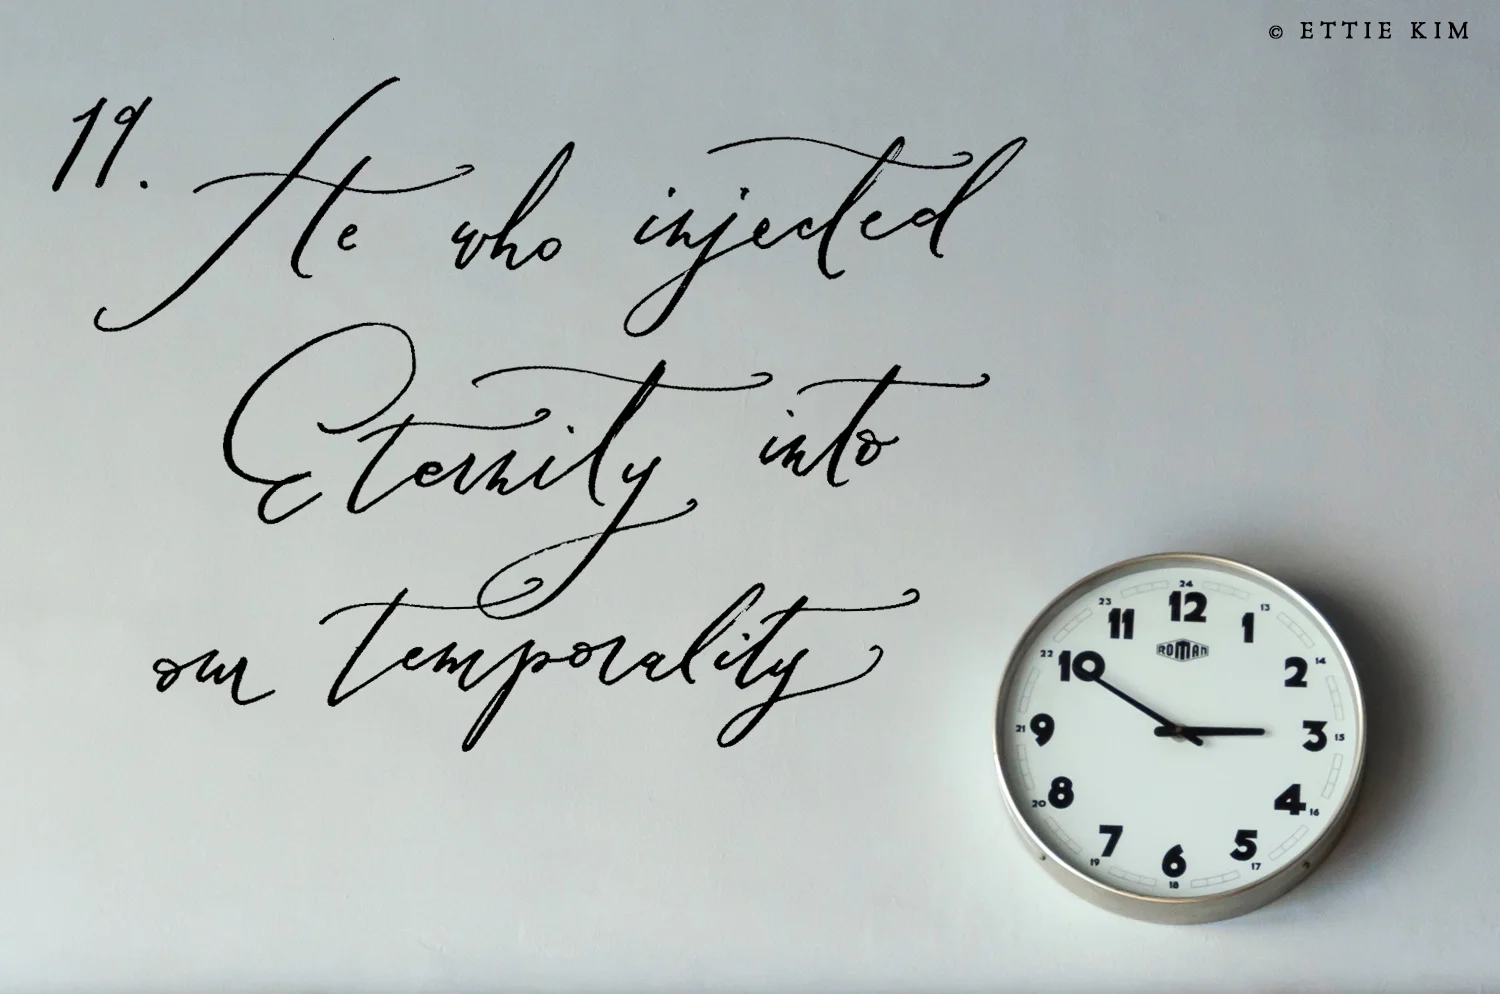 © ETTIE KIM
19. He who injected
Eternity into
our temporality
24
23 11 12 1 13
ROMAN
22 10 2 14
21 9 3 15
20 8 4 16
19 7 6 5 17
18